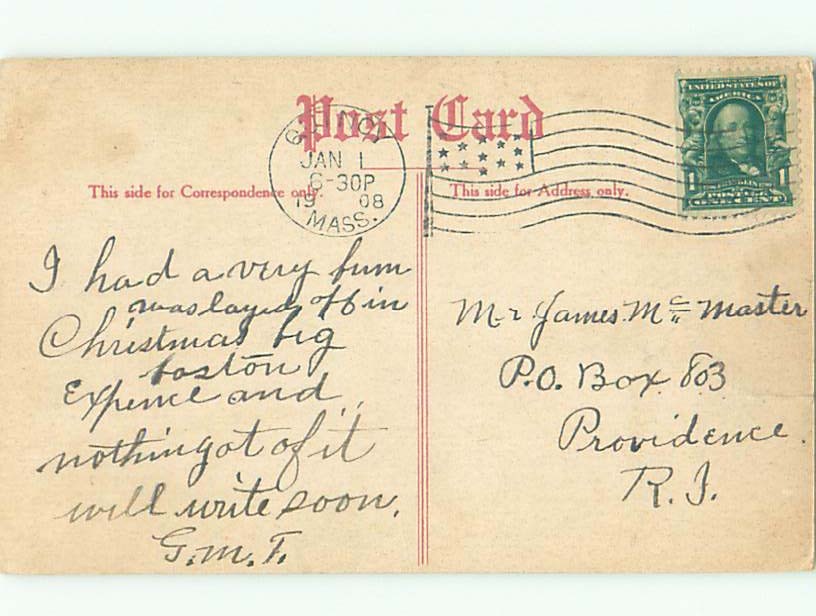 Post Card
QUINCY
JAN 1
6-30P
19 08
MASS.
UNITED STATES OF
AMERICA
1 1
FRANKLIN
ONE CENT
This side for Correspondence only.
This side for Address only.
I had a very bum
was layed off in
Christmas big
boston
Expence and
nothing ot of it
will write soon.
G.M.F.
Mr James Mc Master
P.O. Box 803
Providence.
R.I.